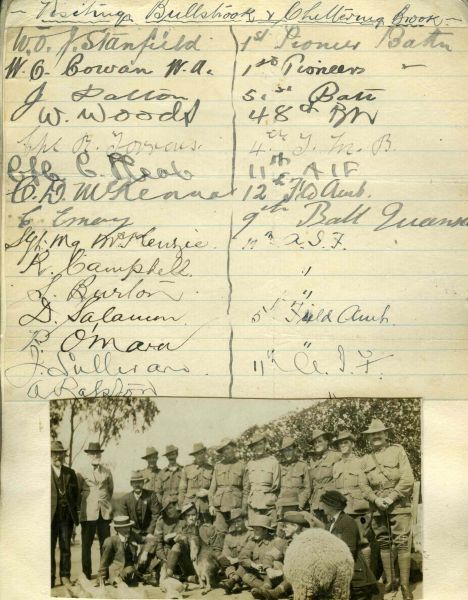 - Visiting Bullsbrook & Chittering Brook -
W.O. J. Stanfield 1st Pioneer Battn
W. C. Cowan W.A. 1st Pioneers "
J. Dalton 5. Batt
W. Woods 48th BN
Cpl R. 4th T. M. B.
Cpl C. 11th AIF
C. D. McKenna 12th Fld Amb.
C. Emery 9th Batt
Sgt. Mg McKenzie 11th A.I.F.
R. Campbell "
L. Burton "
D. Salamon 5th Field Amb.
P. O'Mara "
J. Sullivan 11th A. I. F.
A Ralston